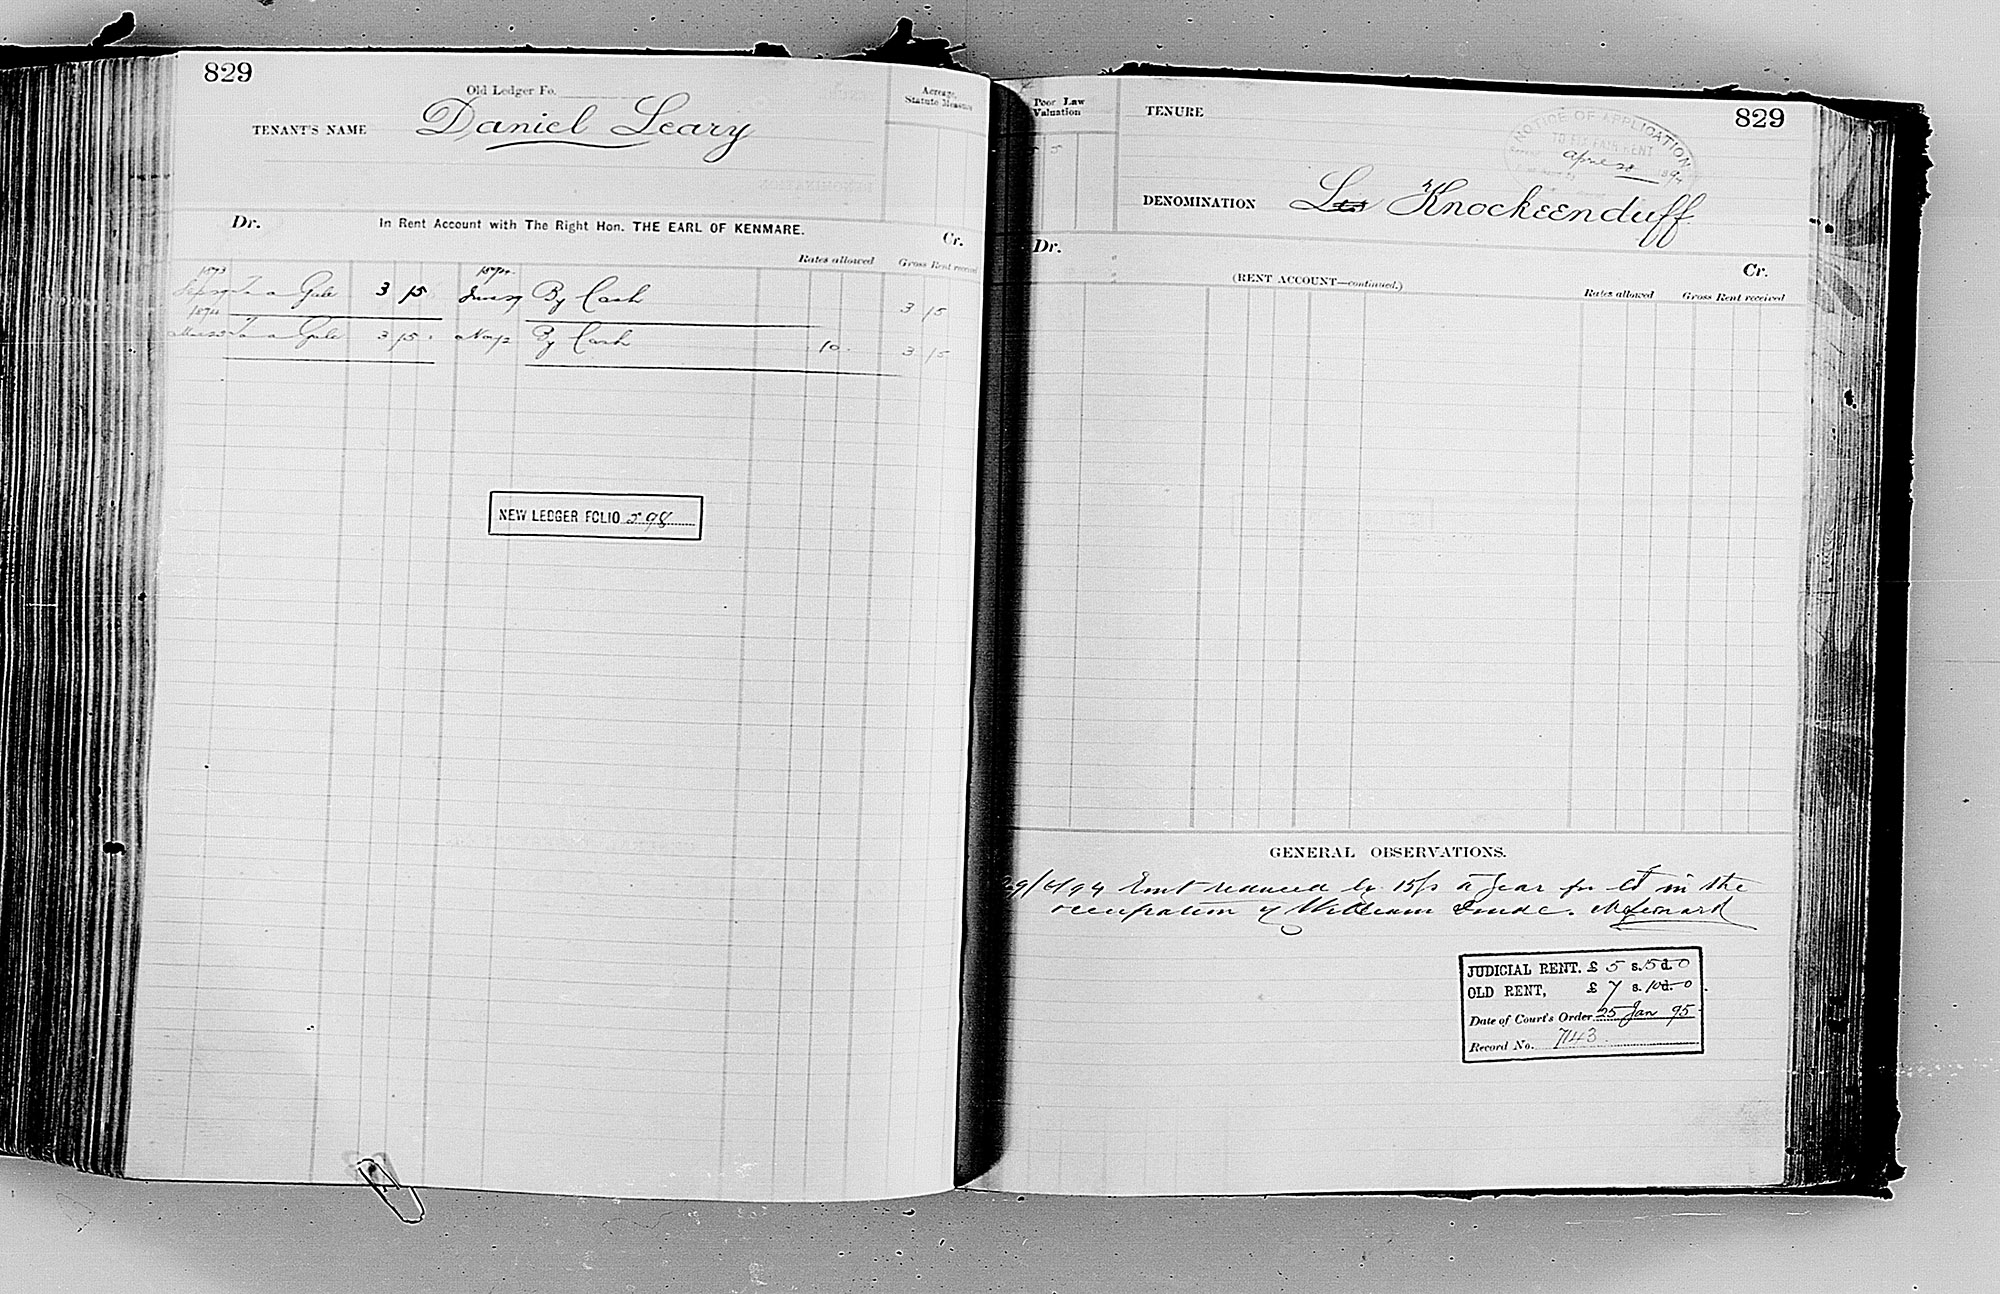 829
Old Ledger Fo.
TENANT'S NAME Daniel Leary
Acreage, Statute Measure
Dr. In Rent Account with The Right Hon. THE EARL OF KENMARE. Cr.
Rates allowed Gross Rent received
1893 1894
To a Gale 3 15 By Cash 3 15
1894
To a Gale 3 15 By Cash 10 3 15
NEW LEDGER FOLIO 598
Poor Law Valuation
TENURE
829
NOTICE OF APPLICATION
TO FIX FAIR RENT
1894
DENOMINATION Knockeenduff
Dr. Cr.
(RENT ACCOUNT—continued.)
Rates allowed Gross Rent received
GENERAL OBSERVATIONS.
Rent reduced by 15/s a year for in the
occupation of William
JUDICIAL RENT. £ 5 s. 15 d. 0
OLD RENT, £ 7 s. 10 d. 0
Date of Court's Order 25 Jan 95
Record No. 7143